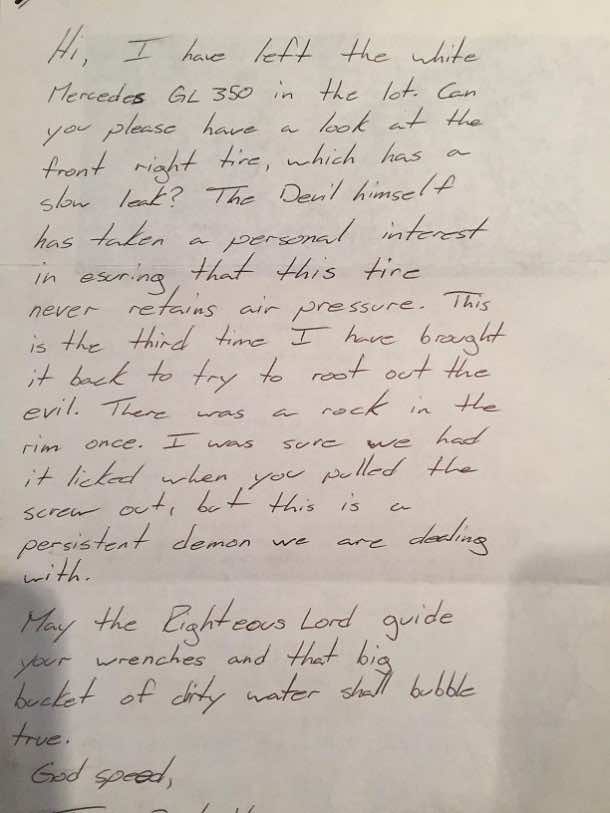 Hi, I have left the white
Mercedes GL 350 in the lot. Can
you please have a look at the
front right tire, which has a
slow leak? The Devil himself
has taken a personal interest
in esuring that this tire
never retains air pressure. This
is the third time I have brought
it back to try to root out the
evil. There was a rock in the
rim once. I was sure we had
it licked when you pulled the
screw out, but this is a
persistent demon we are dealing
with.
May the Righteous Lord guide
your wrenches and that big
bucket of dirty water shall bubble
true.
God speed,